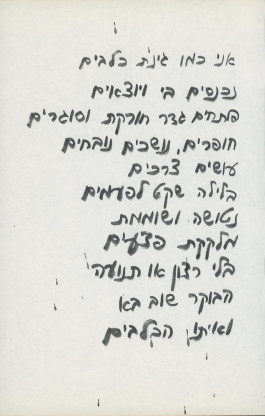 אני כמו גינת כלבים
נכנסים בי ויוצאים
פותחים גדר חורקת וסוגרים
חופרים, נושכים נובחים
עושים צרכים
בלילה שקט לפעמים
נטושה ושוממת
מלקקת פצעים
בלי רצון או תנועה
הבוקר שוב בא
ואיתו הכלבים